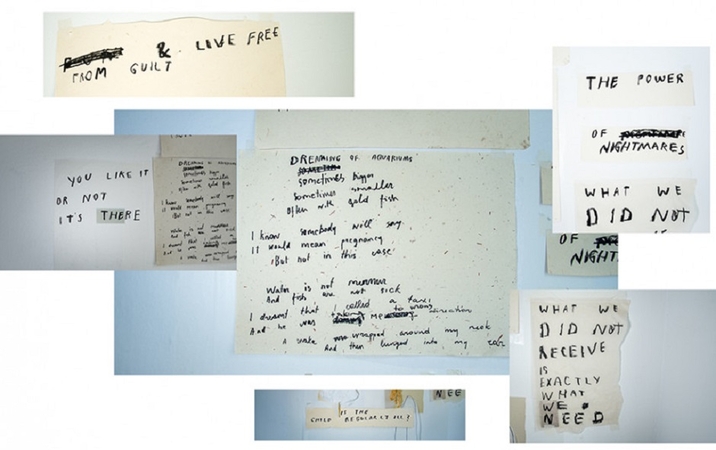 & LIVE FREE
FROM GUILT
YOU LIKE IT
OR NOT
IT'S THERE
DREAMING OF AQUARIUMS
sometimes bigger
sometimes smaller
often with gold fish
I know somebody will say
it would mean pregnancy
But not in this case
Water is not
And fish are not sick
I dreamed that I called a taxi
And he was me to wrong direction
A snake wrapped around my neck
And then lunged into my
THE POWER
OF
NIGHTMARES
WHAT WE
DID NOT
OF
NIGHT
WHAT WE
DID NOT
RECEIVE
IS
EXACTLY
WHAT
WE
NEED
NEE
IS THE
CHILD REGULARLY ILL?